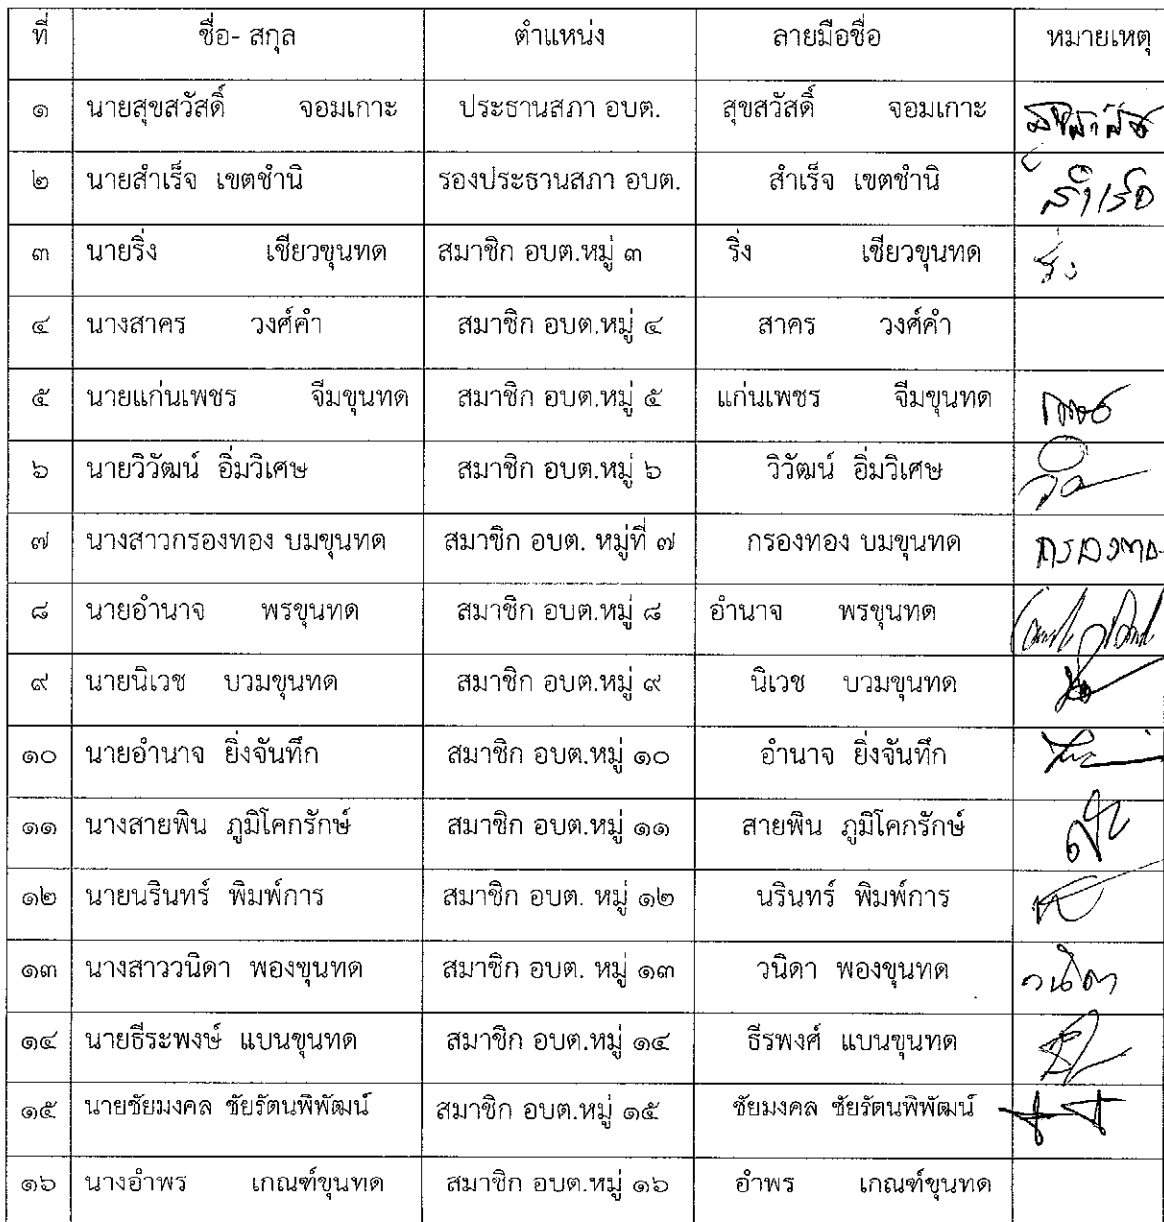 ที่ ชื่อ- สกุล ตำแหน่ง ลายมือชื่อ หมายเหตุ
๑ นายสุขสวัสดิ์ จอมเกาะ ประธานสภา อบต. สุขสวัสดิ์ จอมเกาะ
๒ นายสำเร็จ เขตชำนิ รองประธานสภา อบต. สำเร็จ เขตชำนิ สำเร็จ
๓ นายริ่ง เชียวขุนทด สมาชิก อบต.หมู่ ๓ ริ่ง เชียวขุนทด ริ่ง
๔ นางสาคร วงศ์คำ สมาชิก อบต.หมู่ ๔ สาคร วงศ์คำ
๕ นายแก่นเพชร จีมขุนทด สมาชิก อบต.หมู่ ๕ แก่นเพชร จีมขุนทด
๖ นายวิวัฒน์ อิ่มวิเศษ สมาชิก อบต.หมู่ ๖ วิวัฒน์ อิ่มวิเศษ
๗ นางสาวกรองทอง บมขุนทด สมาชิก อบต. หมู่ที่ ๗ กรองทอง บมขุนทด กรองทอง
๘ นายอำนาจ พรขุนทด สมาชิก อบต.หมู่ ๘ อำนาจ พรขุนทด
๙ นายนิเวช บวมขุนทด สมาชิก อบต.หมู่ ๙ นิเวช บวมขุนทด
๑๐ นายอำนาจ ยิ่งจันทึก สมาชิก อบต.หมู่ ๑๐ อำนาจ ยิ่งจันทึก
๑๑ นางสายพิน ภูมิโคกรักษ์ สมาชิก อบต.หมู่ ๑๑ สายพิน ภูมิโคกรักษ์
๑๒ นายนรินทร์ พิมพ์การ สมาชิก อบต. หมู่ ๑๒ นรินทร์ พิมพ์การ
๑๓ นางสาววนิดา พองขุนทด สมาชิก อบต. หมู่ ๑๓ วนิดา พองขุนทด วนิดา
๑๔ นายธีระพงษ์ แบนขุนทด สมาชิก อบต.หมู่ ๑๔ ธีรพงศ์ แบนขุนทด
๑๕ นายชัยมงคล ชัยรัตนพิพัฒน์ สมาชิก อบต.หมู่ ๑๕ ชัยมงคล ชัยรัตนพิพัฒน์
๑๖ นางอำพร เกณฑ์ขุนทด สมาชิก อบต.หมู่ ๑๖ อำพร เกณฑ์ขุนทด